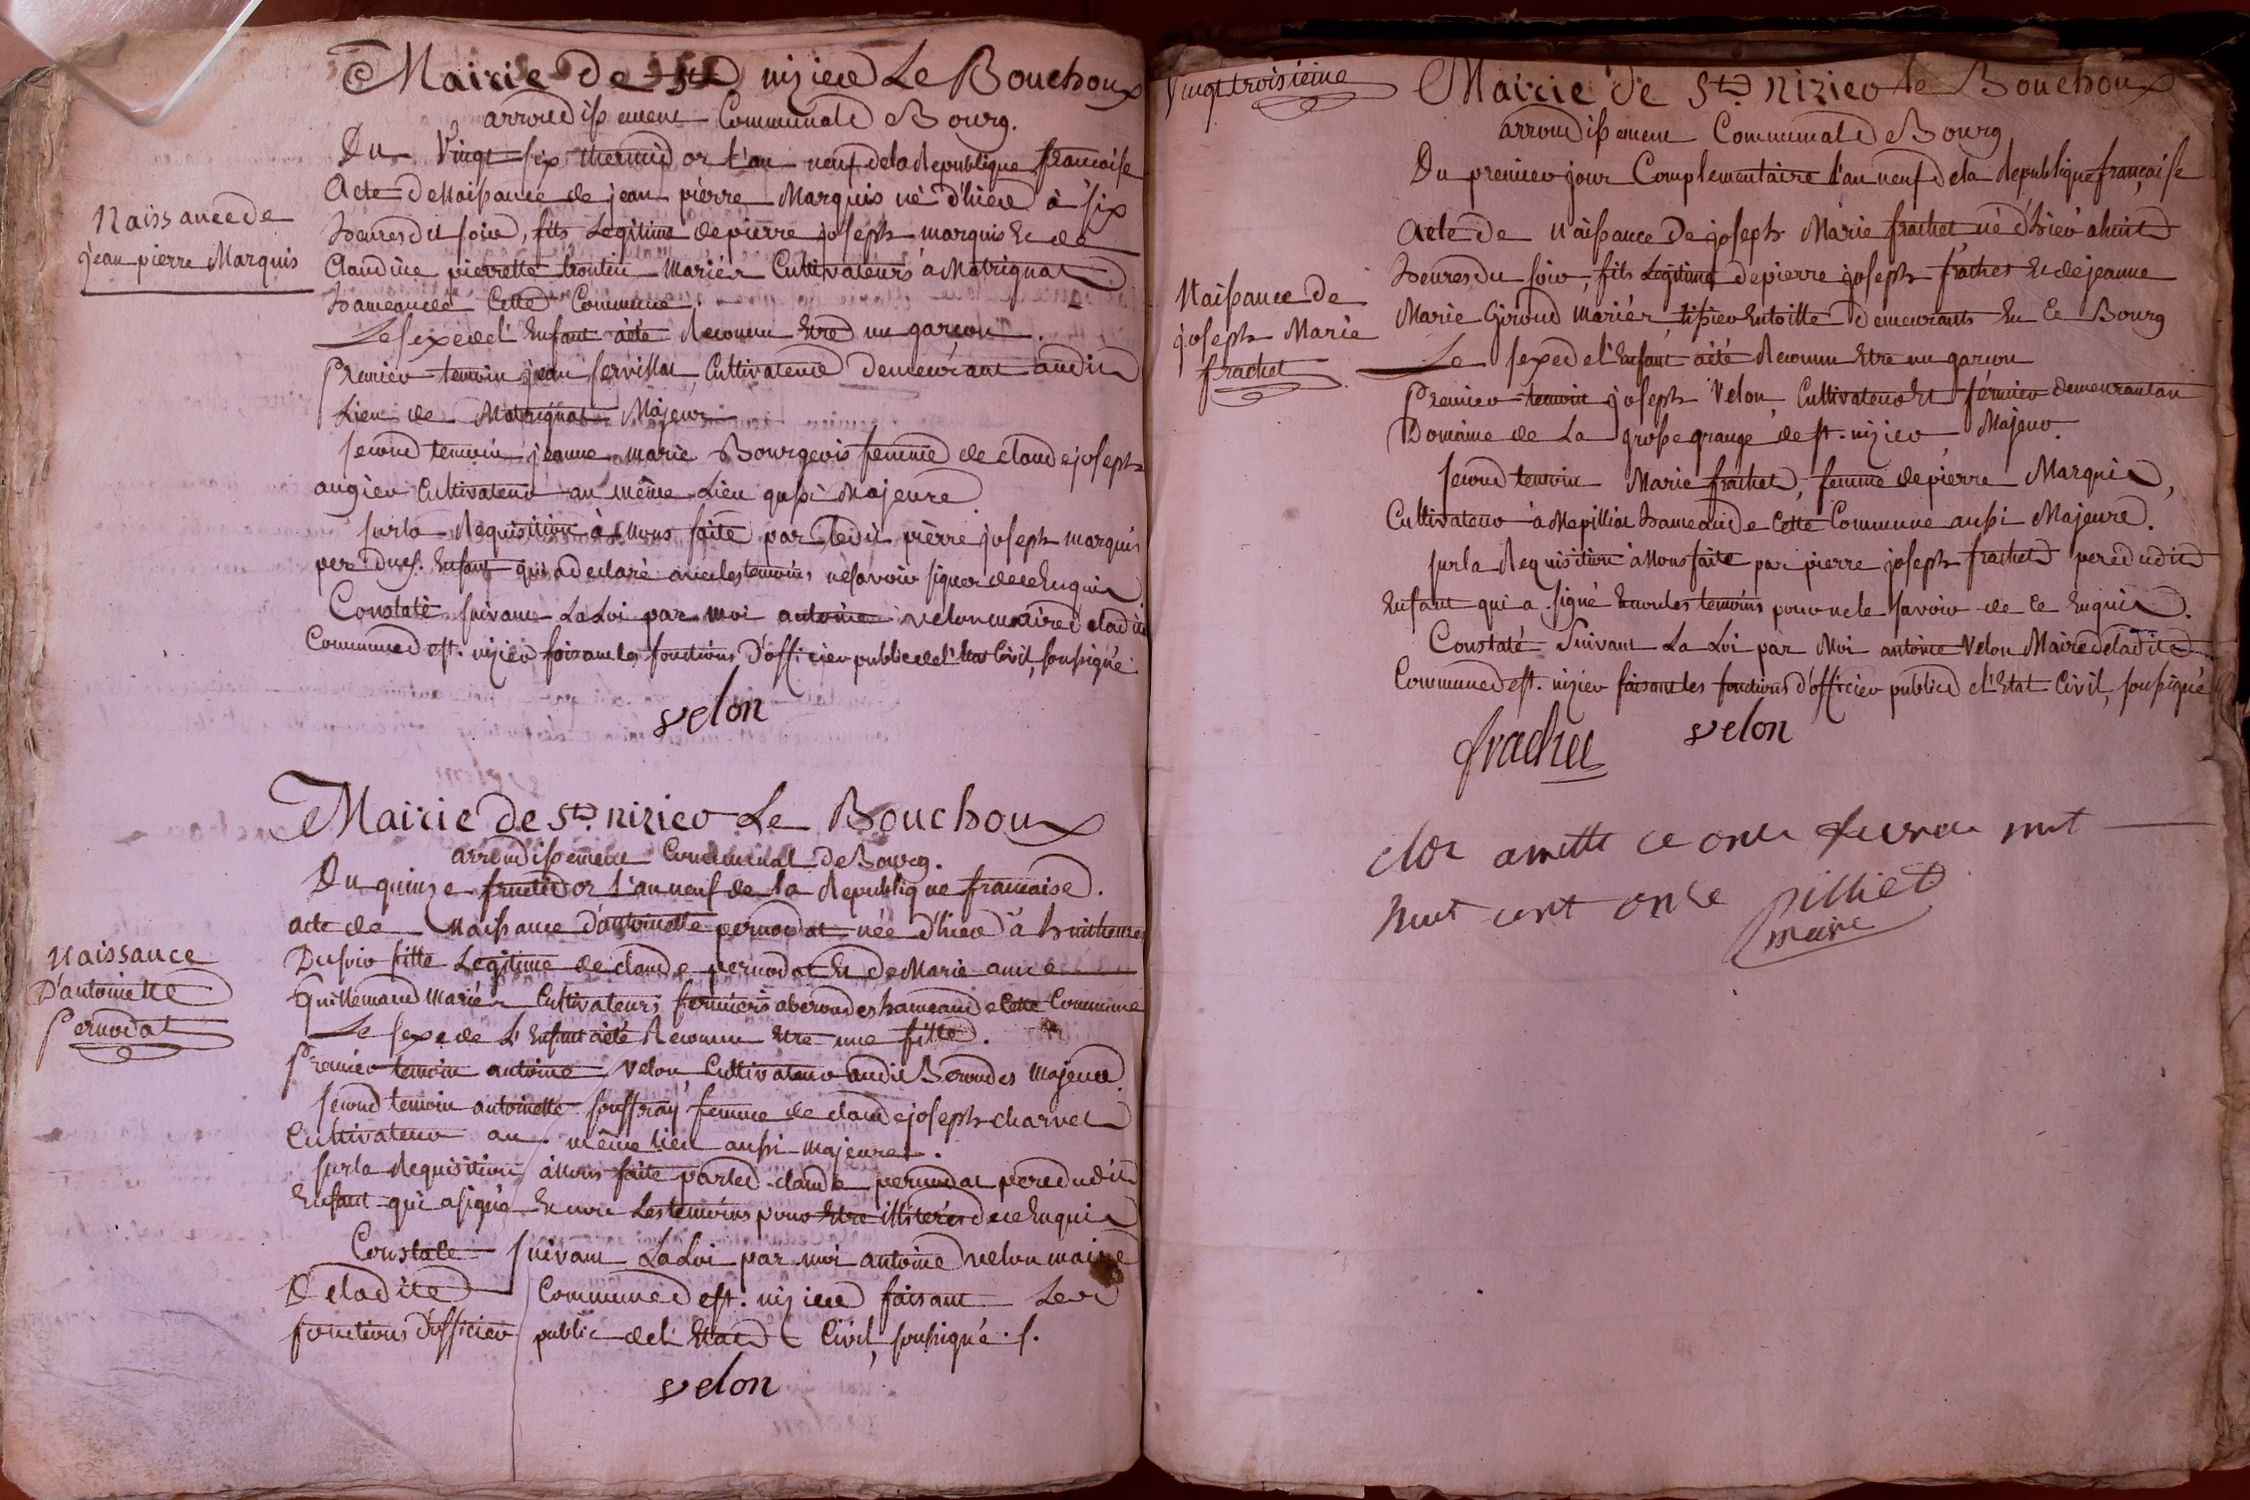 Mairie de St. nizier Le Bouchoux
arrondissement Communal de Bourg.
Du Vingt six thermidor l'an neuf de la Republique francaise
Acte de Naissance de jean pierre Marquis né d'hier à six
heures du soir, fils Legitime de pierre joseph marquis et de
Claudine pierrette mariés Cultivateurs à Matrignat
hameau de Cette Commune.
Le sexe de l'Enfant a été Reconnu Etre un garçon.
Premier temoin jean servillat, Cultivateur demeurant audit
Lieu de Matrignat Majeur
second temoin jeanne marie Bourgeois femme de claude joseph
augier Cultivateur au même Lieu aussi Majeure
sur la Requisition à Nous faite par ledit pierre joseph marquis
pere dud. Enfant qui a declaré avec les temoins ne savoir signer de ce Enquis
Constaté suivant La Loi par moi antoine velon maire de ladite
Commune de st. nizier faisant les fonctions d'officier public de l'Etat Civil, soussigné
velon
Naissance de
jean pierre Marquis
Mairie de St. nizier Le Bouchoux
arrondissement Communal de Bourg.
Du quinze fructidor l'an neuf de la Republique francaise.
acte de Naissance d'antoinette pernodat née d'hier à huit heures
Du soir fille Legitime de claude pernodat Et de Marie anne
Guillemaud mariés Cultivateurs fermiers a beroudes hameau de Cette Commune
Le sexe de L'Enfant a été Reconnu Etre une fille.
Premier temoin antoine velon, Cultivateur audit Beroudes majeur
second temoin antoinette souffray femme de claude joseph charvet
Cultivateur au même lieu aussi majeure.
sur la Requisition à Nous faite par led. claude pernodat pere dudit
Enfant qui a signé Et non Les temoins pour Etre illiterés de ce Enquis
Constate suivant La Loi par moi antoine velon maire
De ladite Commune de st. nizier faisant Les
fonctions d'officier public de l'Etat Civil, soussigné.
velon
Naissance
D'antoinette
Pernodat
Vingt troisieme
Mairie de St. Nizier le Bouchoux
arrondissement Communal de Bourg
Du premier jour Complementaire l'an neuf de la Republique française
Acte de Naissance De joseph Marie frachet né d'hier a huit
heures du soir, fils Legitime de pierre joseph frachet Et de jeanne
Marie Giroud mariés tissier En toille demeurants En Ce Bourg
Le sexe de l'Enfant a été Reconnu Etre un garcon
Premier temoin joseph Velon, Cultivateur Et fermier demeurant au
Domaine de La grosse grange de st. nizier Majeur.
second temoin Marie frachet, femme de pierre Marquis,
Cultivateur à Mepilliat hameau de Cette Commune aussi Majeure.
sur la Requisition à Nous faite par pierre joseph frachet pere dudit
Enfant qui a signé Et non les temoins pour ne le savoir de ce Enquis.
Constaté Suivant La Loi par Moi antoine Velon Maire de ladite
Commune de st. nizier faisant les fonctions d'officier public de l'Etat Civil, soussigné
frachet velon
Naissance de
joseph Marie
frachet
clos arretté ce onze fevrier mil
huit cent onze Pilliet
maire